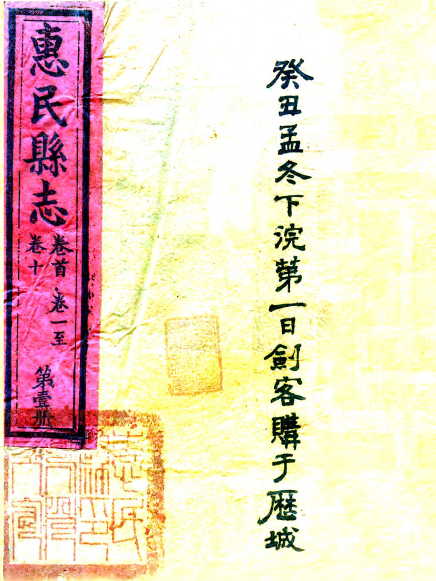 癸丑孟冬下浣第一日劍客購于厯城
惠民縣志
卷首 卷一至
卷十
第壹册